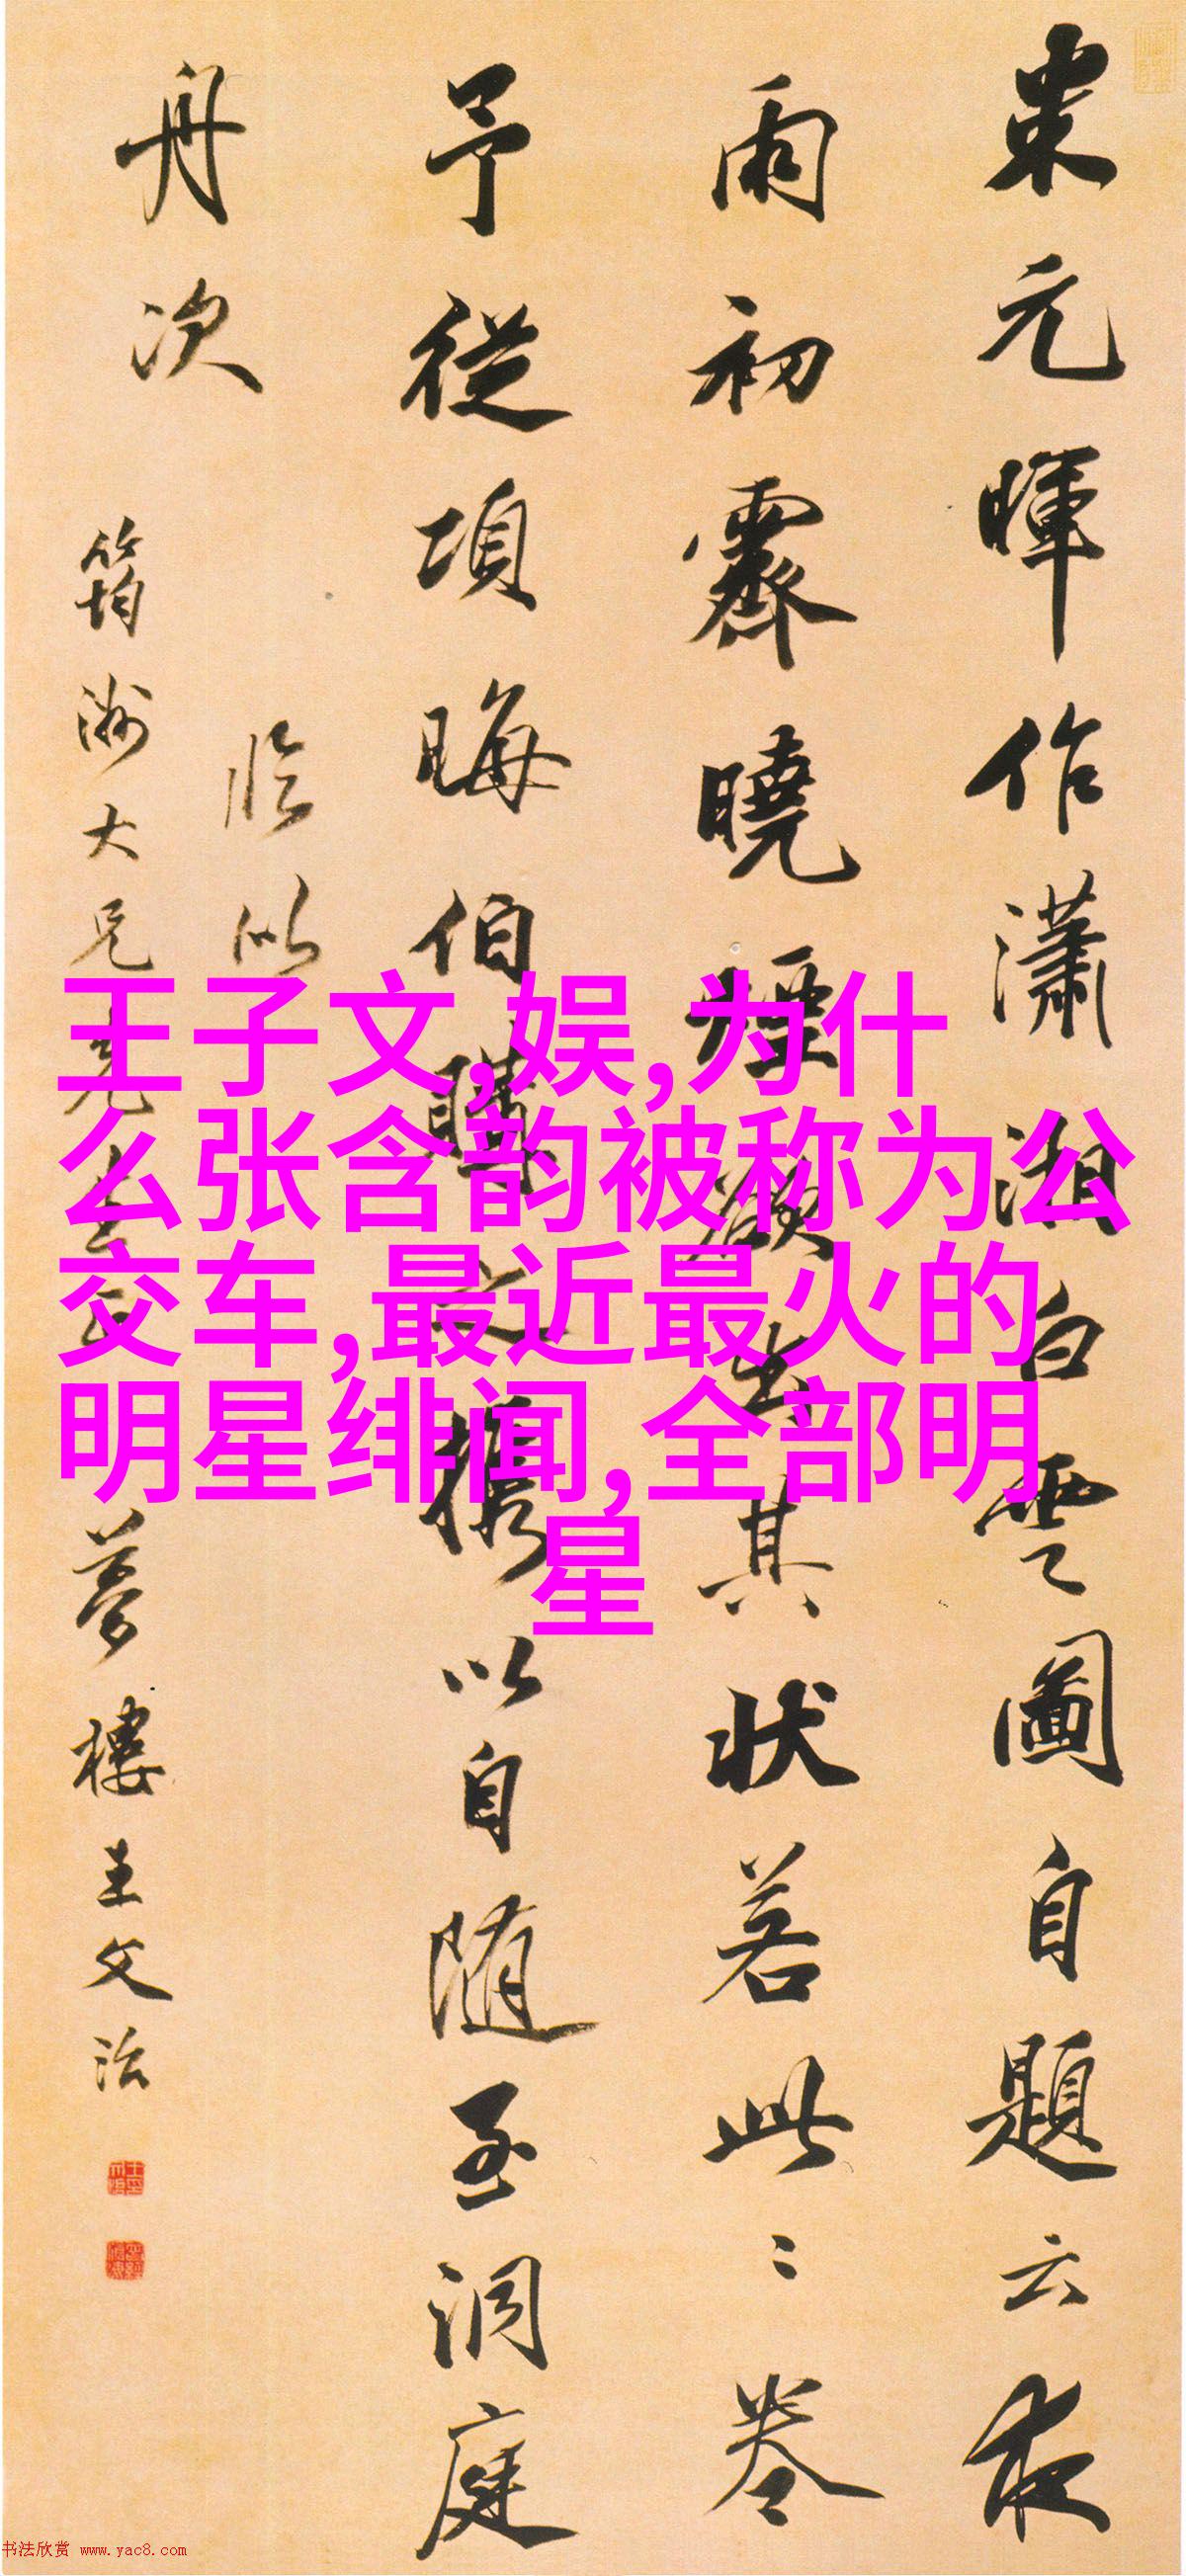 米元暉作瀟湘白雲圖自題云夜
雨初霽曉煙欲出其狀若此此卷
予從項晦伯購之攜以自隨至洞庭
舟次
臨以
筠洲大兄先生正 夢樓王文治
王子文,娱,为什
么张含韵被称为公
交车,最近最火的
明星绯闻,全部明
星
书法欣赏 www.yac8.com